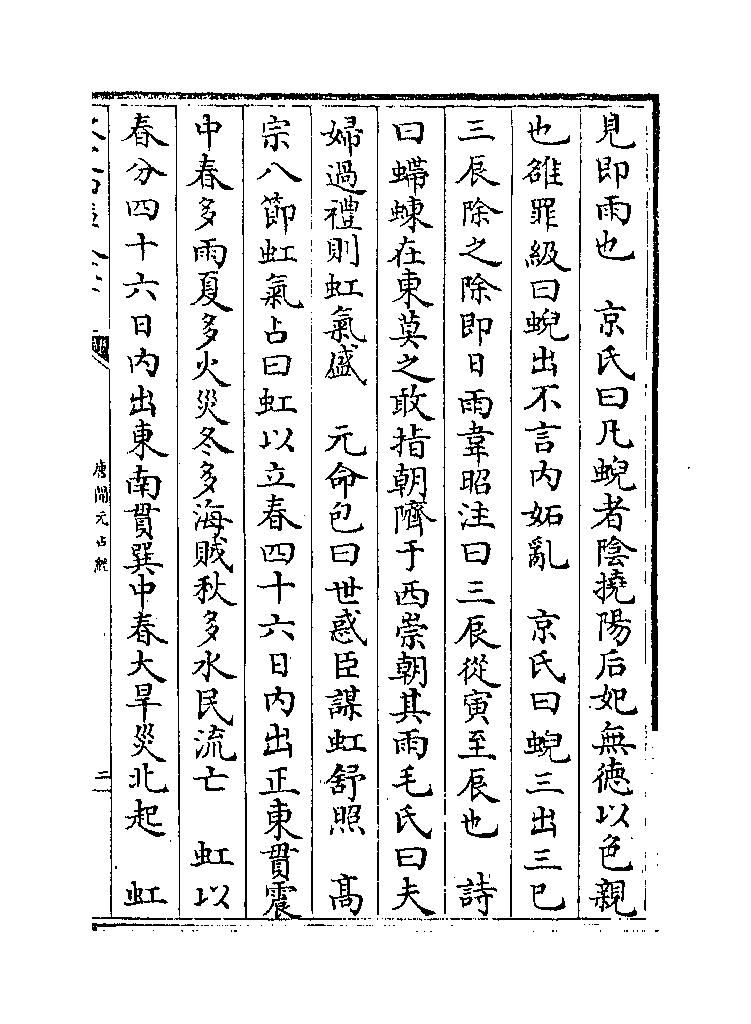 見即雨也　京氏曰凡蜺者陰撓陽后妃無徳以色親
也雒罪級曰蜺出不言內妬亂　京氏曰蜺三出三已
三辰除之除即日雨韋昭注曰三辰從寅至辰也　詩
曰蝃蝀在東莫之敢指朝隮于西崇朝其雨毛氏曰夫
婦過禮則虹氣盛　元命包曰世惑臣謀虹舒照　髙
宗八節虹氣占曰虹以立春四十六日內出正東貫震
中春多雨夏多火災冬多海賊秋多水民流亡　虹以
春分四十六日內出東南貫巽中春大旱災北起　虹
唐開元占經
二